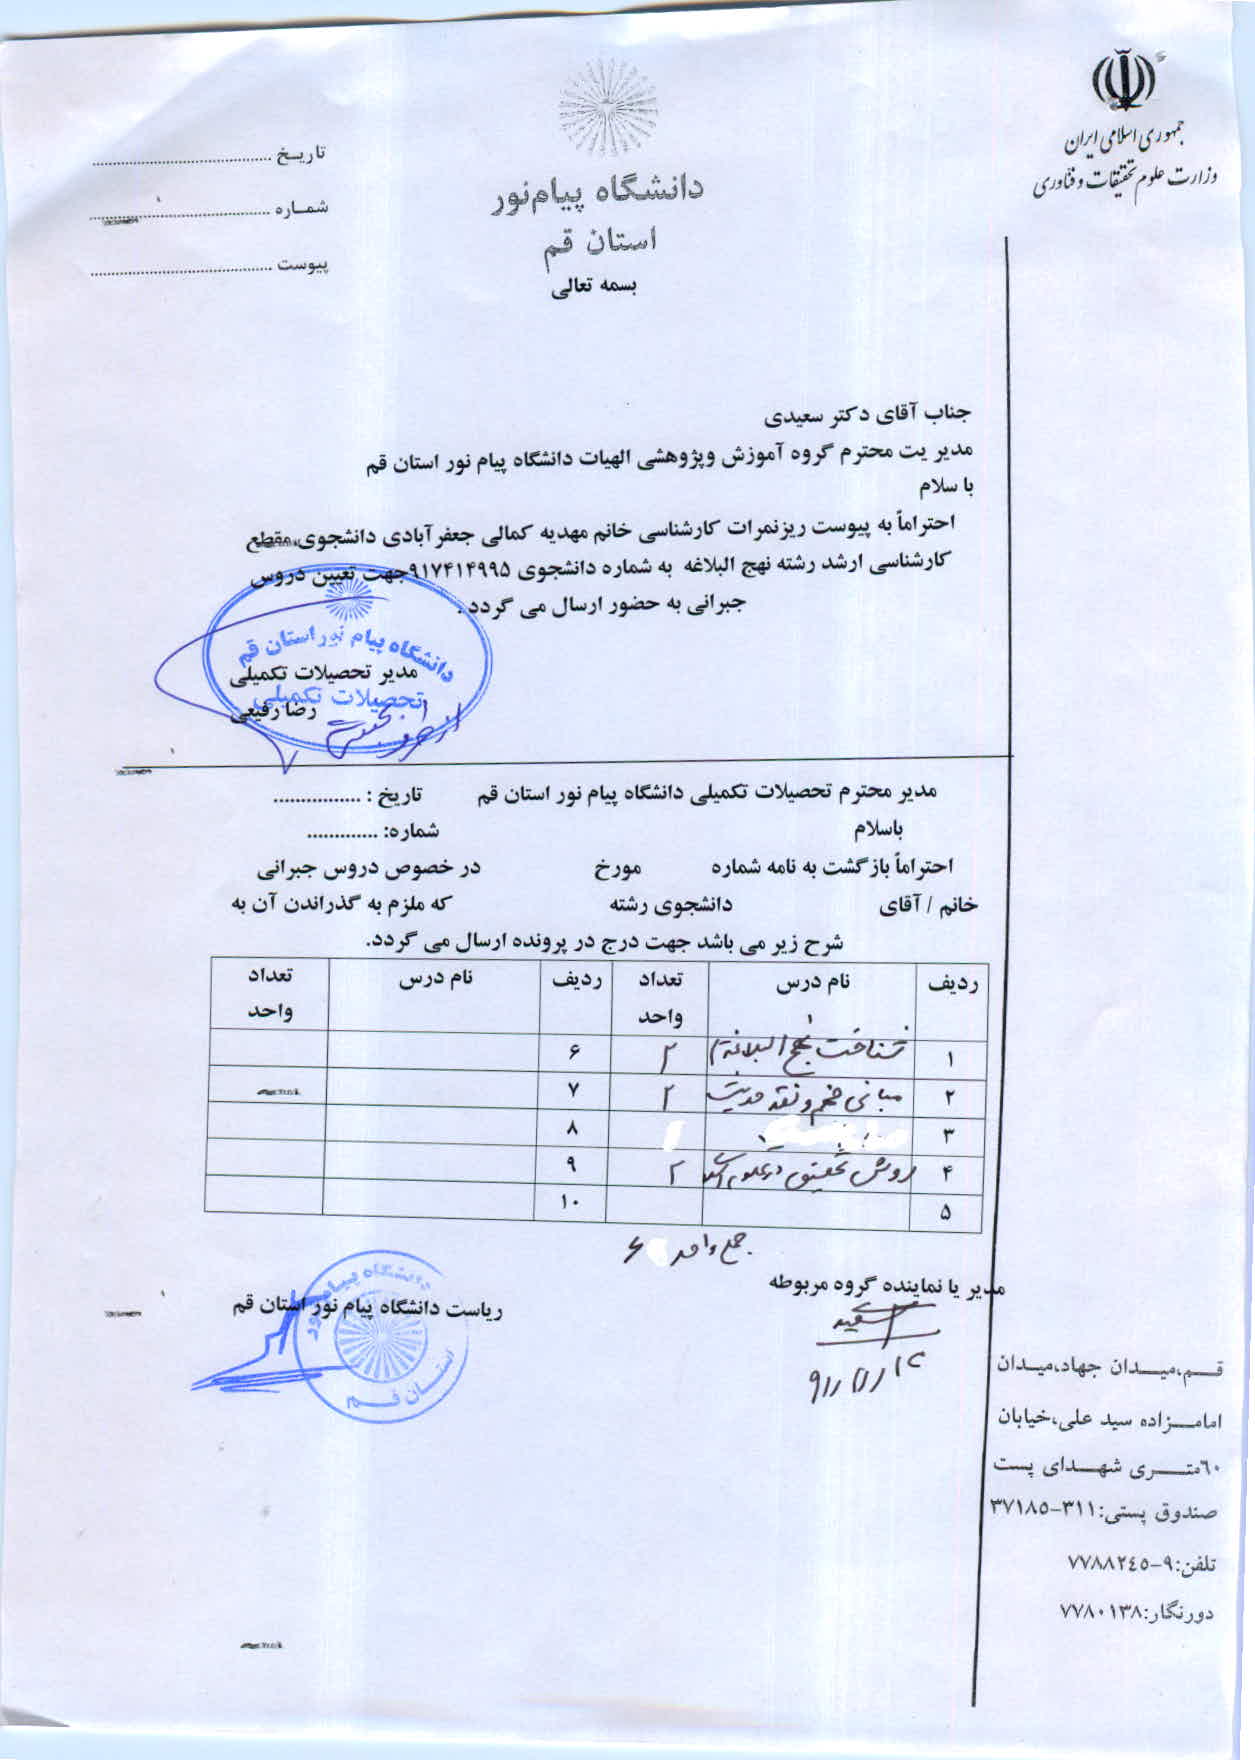 جمهوری اسلامی ایران
وزارت علوم تحقیقات و فناوری
دانشگاه پیام‌نور
استان قم
بسمه تعالی
تاریـخ ............................................
شمـاره ............................................
پیوست ............................................
جناب آقای دکتر سعیدی
مدیر یت محترم گروه آموزش وپژوهشی الهیات دانشگاه پیام نور استان قم
با سلام
احتراماً به پیوست ریزنمرات کارشناسی خانم مهدیه کمالی جعفرآبادی دانشجوی مقطع
کارشناسی ارشد رشته نهج البلاغه به شماره دانشجوی ۹۱۷۴۱۴۹۹۵جهت تعیین دروس
جبرانی به حضور ارسال می گردد .
دانشگاه پیام نور استان قم
مدیر تحصیلات تکمیلی
تحصیلات تکمیلی
رضا رفیعی
مدیر محترم تحصیلات تکمیلی دانشگاه پیام نور استان قم تاریخ : ................
باسلام شماره: .............
احتراماً بازگشت به نامه شماره مورخ در خصوص دروس جبرانی
خانم / آقای دانشجوی رشته که ملزم به گذراندن آن به
شرح زیر می باشد جهت درج در پرونده ارسال می گردد.
ردیف نام درس تعداد واحد ردیف نام درس تعداد واحد
۱ شناخت نهج البلاغه ۱ ۲ ۶
۲ مبانی فهم و نقد حدیث ۲ ۷
۳ ۸
۴ روش تحقیق در علوم ۲ ۹
۵ ۱۰
جمع واحد ۶
مدیر یا نماینده گروه مربوطه
سعیدی
ریاست دانشگاه پیام نور استان قم
دانشگاه پیام نور
استان قم
قـــم،میــدان جهاد،میـدان
امامـــزاده سید علی،خیابان
۶۰متـــــری شهــدای پست
صندوق پستی:۳۱۱-۳۷۱۸۵
تلفن:۹-۷۷۸۸۲٤٥
دورنگار:۷۷۸۰۱۳۸